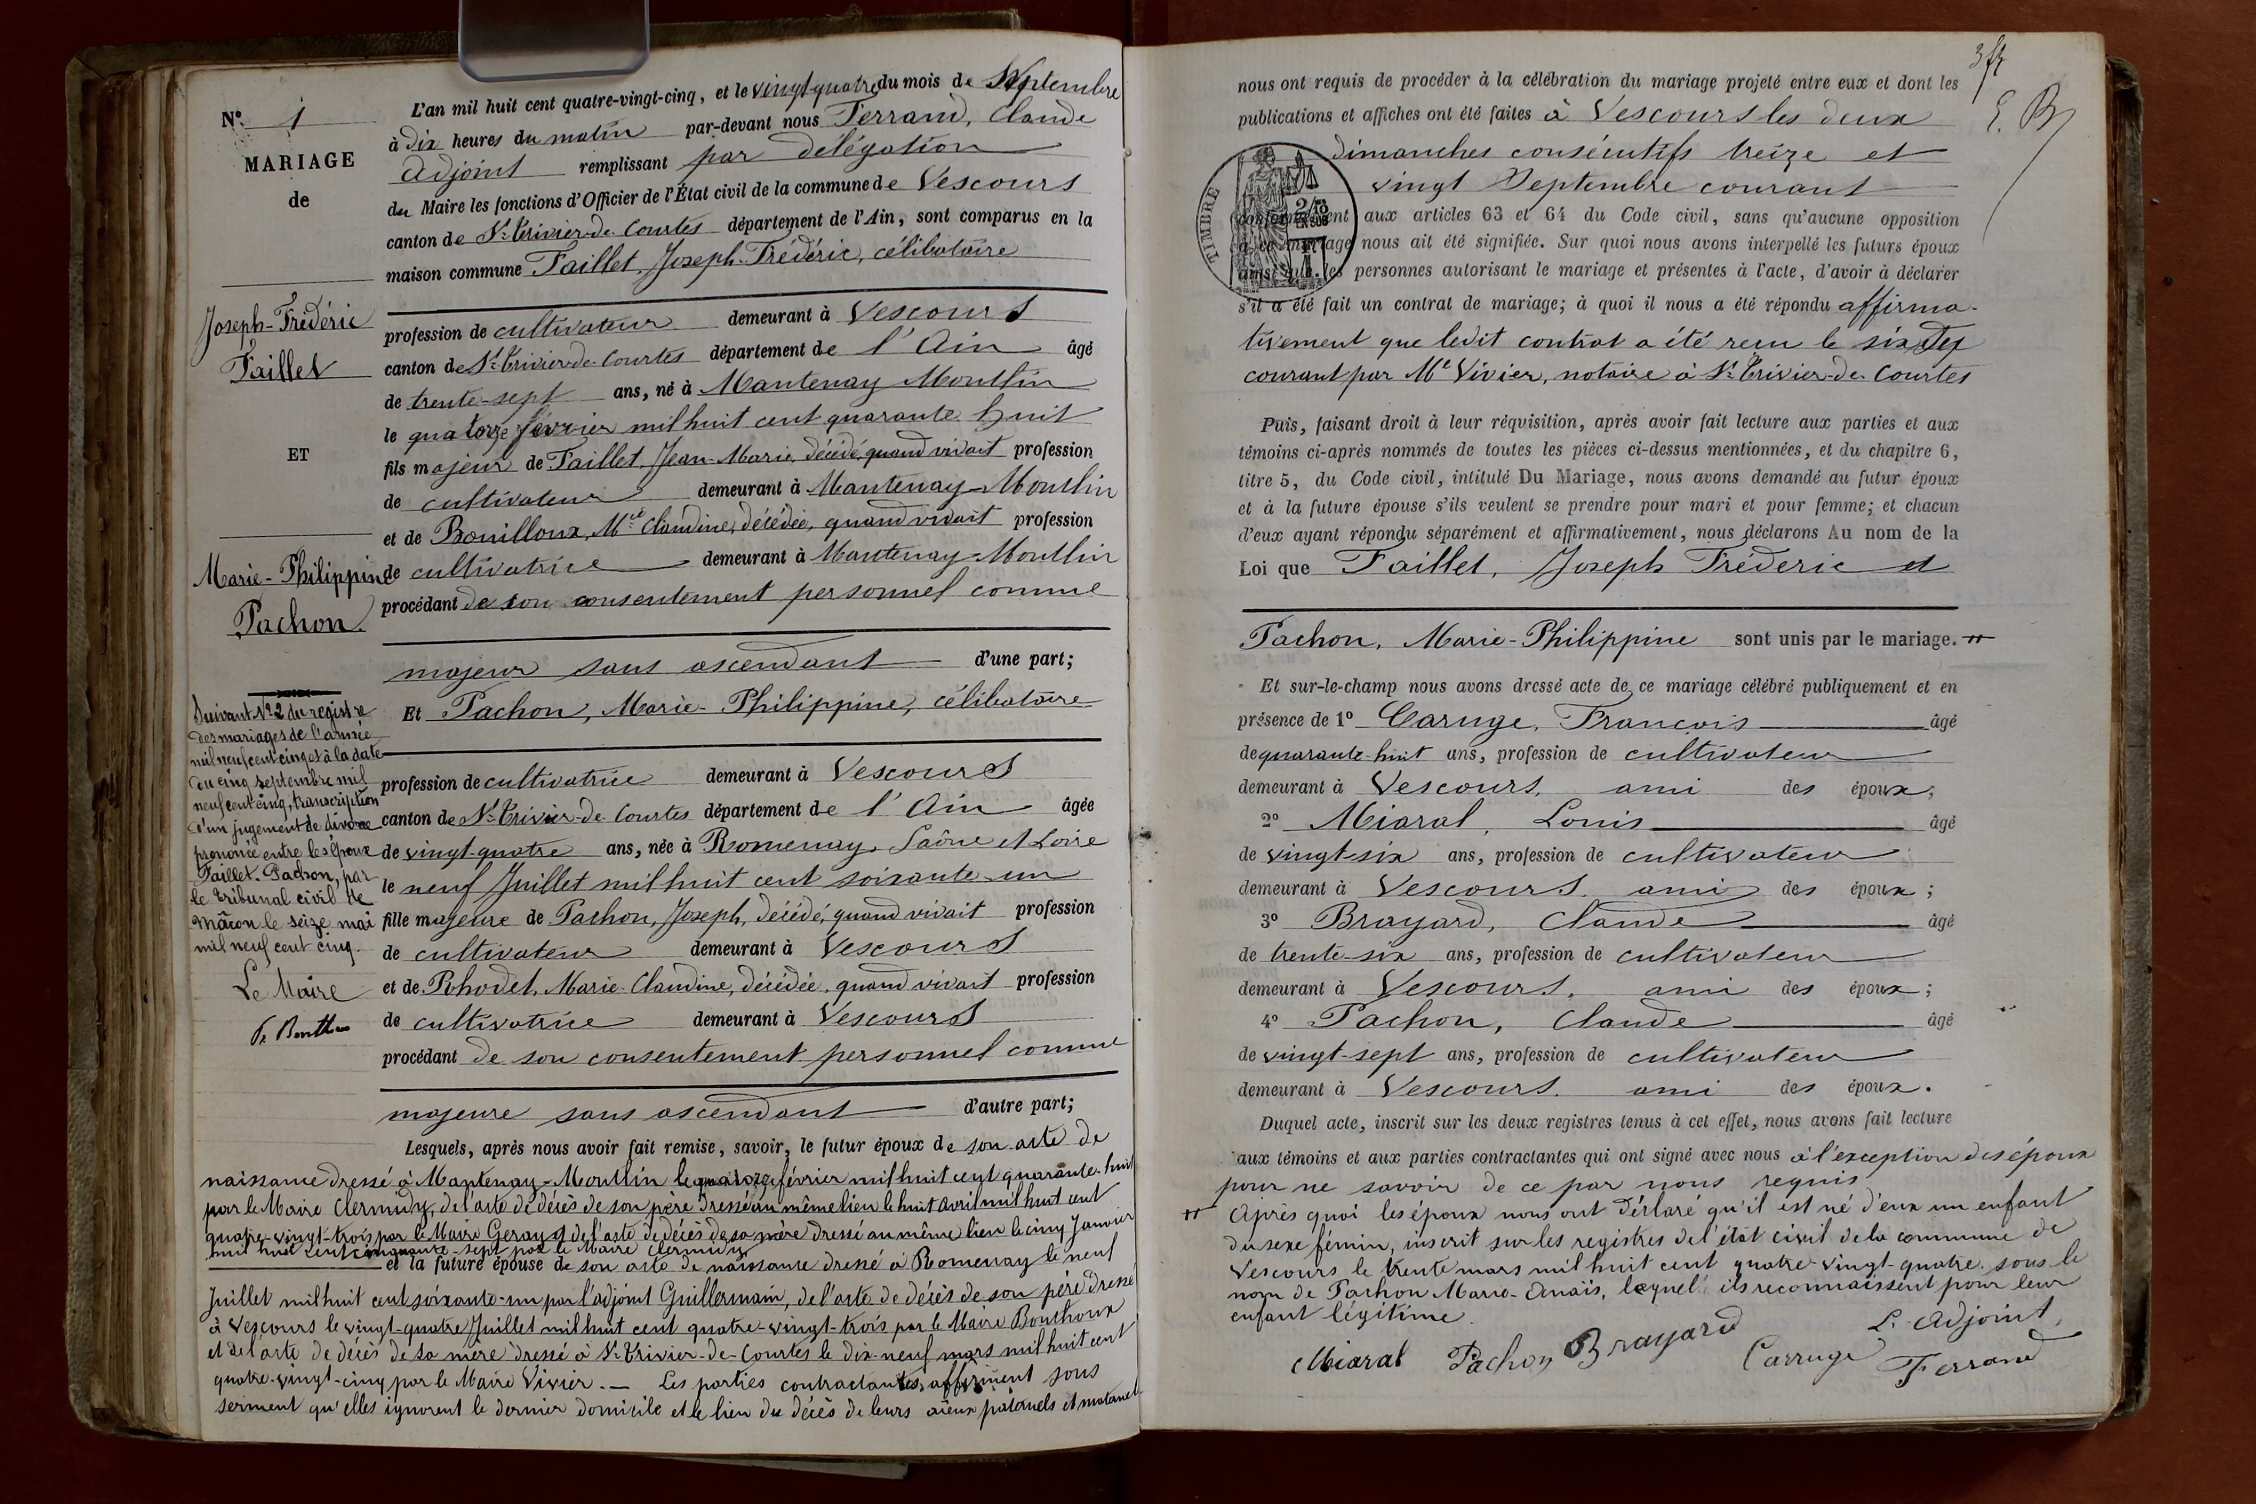 N° 1
MARIAGE
de
Joseph-Frédéric
Faillet
ET
Marie-Philippine
Pachon.
Suivant N° 2 du registre
des mariages de l'année
mil neuf cent cinq et à la date
du cinq septembre mil
neuf cent cinq, transcription
d'un jugement de divorce
prononcé entre les époux
Faillet-Pachon, par
le tribunal civil de
Mâcon le seize mai
mil neuf cent cinq.
Le Maire
L'an mil huit cent quatre-vingt-cinq, et le vingt quatre du mois de Septembre
à dix heures du matin par-devant nous Ferrand, Claude
adjoint remplissant par délégation
du Maire les fonctions d'Officier de l'État civil de la commune de Vescours
canton de St Trivier-de-Courtes département de l'Ain, sont comparus en la
maison commune Faillet, Joseph-Frédéric, célibataire
profession de cultivateur demeurant à Vescours
canton de St Trivier-de-Courtes département de l'Ain âgé
de trente-sept ans, né à Mantenay Montlin
le quatorze février mil huit cent quarante huit
fils majeur de Faillet, Jean-Marie, décédé, quand vivait profession
de cultivateur demeurant à Mantenay-Montlin
et de Bouilloux, Mie Claudine, décédée, quand vivait profession
de cultivatrice demeurant à Mantenay-Montlin
procédant de son consentement personnel comme
majeur sans ascendant d'une part;
Et Pachon, Marie-Philippine, célibataire
profession de cultivatrice demeurant à Vescours
canton de St Trivier-de-Courtes département de l'Ain âgée
de vingt-quatre ans, née à Romenay, Saône et Loire
le neuf Juillet mil huit cent soixante-un
fille majeure de Pachon, Joseph, décédé, quand vivait profession
de cultivateur demeurant à Vescours
et de Rhodet, Marie-Claudine, décédée, quand vivait profession
de cultivatrice demeurant à Vescours
procédant de son consentement personnel comme
majeure sans ascendant d'autre part;
Lesquels, après nous avoir fait remise, savoir, le futur époux de son acte de
naissance dressé à Mantenay-Montlin le quatorze février mil huit cent quarante-huit
par le Maire Clermidy, de l'acte de décès de son père dressé au même lieu le huit avril mil huit cent
quatre-vingt-trois par le Maire Geray et de l'acte de décès de sa mère dressé au même lieu le cinq Janvier
mil huit cent cinquante-sept par le Maire Clermidy
et la future épouse de son acte de naissance dressé à Romenay le neuf
Juillet mil huit cent soixante-un par l'adjoint Guillermain, de l'acte de décès de son père dressé
à Vescours le vingt-quatre Juillet mil huit cent quatre-vingt-trois par le Maire Bonthoux
et de l'acte de décès de sa mère dressé à St Trivier-de-Courtes le dix-neuf mars mil huit cent
quatre-vingt-cinq par le Maire Vivier. — Les parties contractantes affirment sous
serment qu'elles ignorent le dernier domicile et le lieu du décès de leurs aïeux paternels et maternels
nous ont requis de procéder à la célébration du mariage projeté entre eux et dont les
publications et affiches ont été faites à Vescours les deux
dimanches consécutifs treize et
vingt Septembre courant
TIMBRE
conformément aux articles 63 et 64 du Code civil, sans qu'aucune opposition
à ce mariage nous ait été signifiée. Sur quoi nous avons interpellé les futurs époux
ainsi que les personnes autorisant le mariage et présentes à l'acte, d'avoir à déclarer
s'il a été fait un contrat de mariage; à quoi il nous a été répondu affirma-
tivement que ledit contrat a été reçu le six
courant par Me Vivier, notaire à St Trivier-de-Courtes
Puis, faisant droit à leur réquisition, après avoir fait lecture aux parties et aux
témoins ci-après nommés de toutes les pièces ci-dessus mentionnées, et du chapitre 6,
titre 5, du Code civil, intitulé Du Mariage, nous avons demandé au futur époux
et à la future épouse s'ils veulent se prendre pour mari et pour femme; et chacun
d'eux ayant répondu séparément et affirmativement, nous déclarons Au nom de la
Loi que Faillet, Joseph Frédéric et
Pachon, Marie-Philippine sont unis par le mariage.
Et sur-le-champ nous avons dressé acte de ce mariage célébré publiquement et en
présence de 1° Carruge, François âgé
de quarante-huit ans, profession de cultivateur
demeurant à Vescours, ami des époux;
2° Miaral, Louis âgé
de vingt-six ans, profession de cultivateur
demeurant à Vescours, ami des époux;
3° Brayard, Claude âgé
de trente-six ans, profession de cultivateur
demeurant à Vescours, ami des époux;
4° Pachon, Claude âgé
de vingt-sept ans, profession de cultivateur
demeurant à Vescours, ami des époux.
Duquel acte, inscrit sur les deux registres tenus à cet effet, nous avons fait lecture
aux témoins et aux parties contractantes qui ont signé avec nous à l'exception des époux
pour ne savoir de ce par nous requis
Après quoi les époux nous ont déclaré qu'il est né d'eux un enfant
du sexe féminin, inscrit sur les registres de l'état civil de la commune de
Vescours le trente mars mil huit cent quatre-vingt-quatre sous le
nom de Pachon Marie-Anaïs, lequel ils reconnaissent pour leur
enfant légitime.
L'Adjoint,
Miaral Pachon Brayard Carruge Ferrand